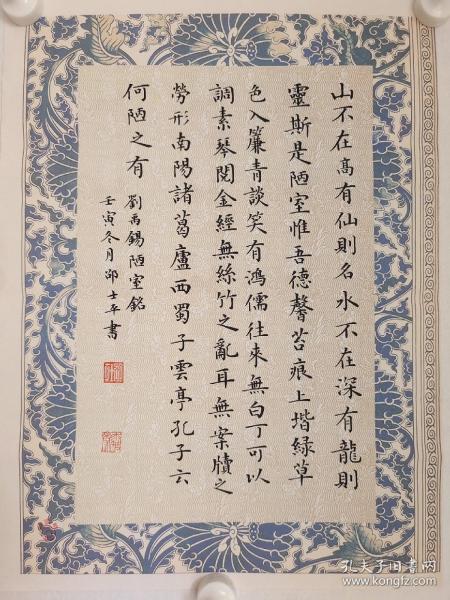 山不在高有仙則名水不在深有龍則
靈斯是陋室惟吾德馨苔痕上堦緑草
色入簾青談笑有鴻儒往來無白丁可以
調素琴閱金經無絲竹之亂耳無案牘之
勞形南陽諸葛廬西蜀子雲亭孔子六
何陋之有
劉禹錫陋室銘
壬寅冬月邵士平書
孔夫子旧书网
www.kongfz.com